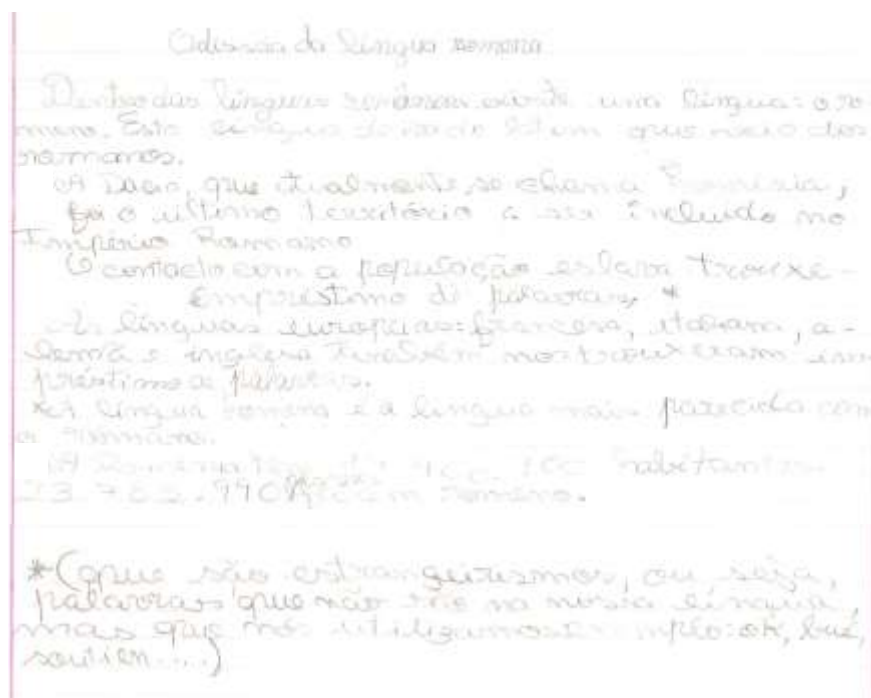 Odisseia da língua romena
Dentro das línguas românicas existe uma língua: o ro
meno. Esta língua do latim que veio dos
romanos.
A Dácia, que atualmente se chama Roménia,
foi o último território a ser incluido no
Império Romano
O contacto com a população eslava trouxe
empréstimo de palavras, *
As línguas europeias: francesa, italiana, a-
lemã e inglesa também nos trouxeram em
préstimo a palavras.
*A língua romena é a língua mais parecida com
o romano.
A habitantes
romeno.
*(que são estrangeirismos, ou seja,
palavras que não são na nossa língua,
mas que nós utilizamos exemplo: ok, bué,
soutien....)